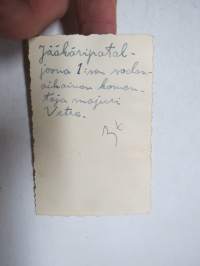 Jääkäripatal-
joona 1:sen sodan
aikainen komen-
taja majuri
Vetre.